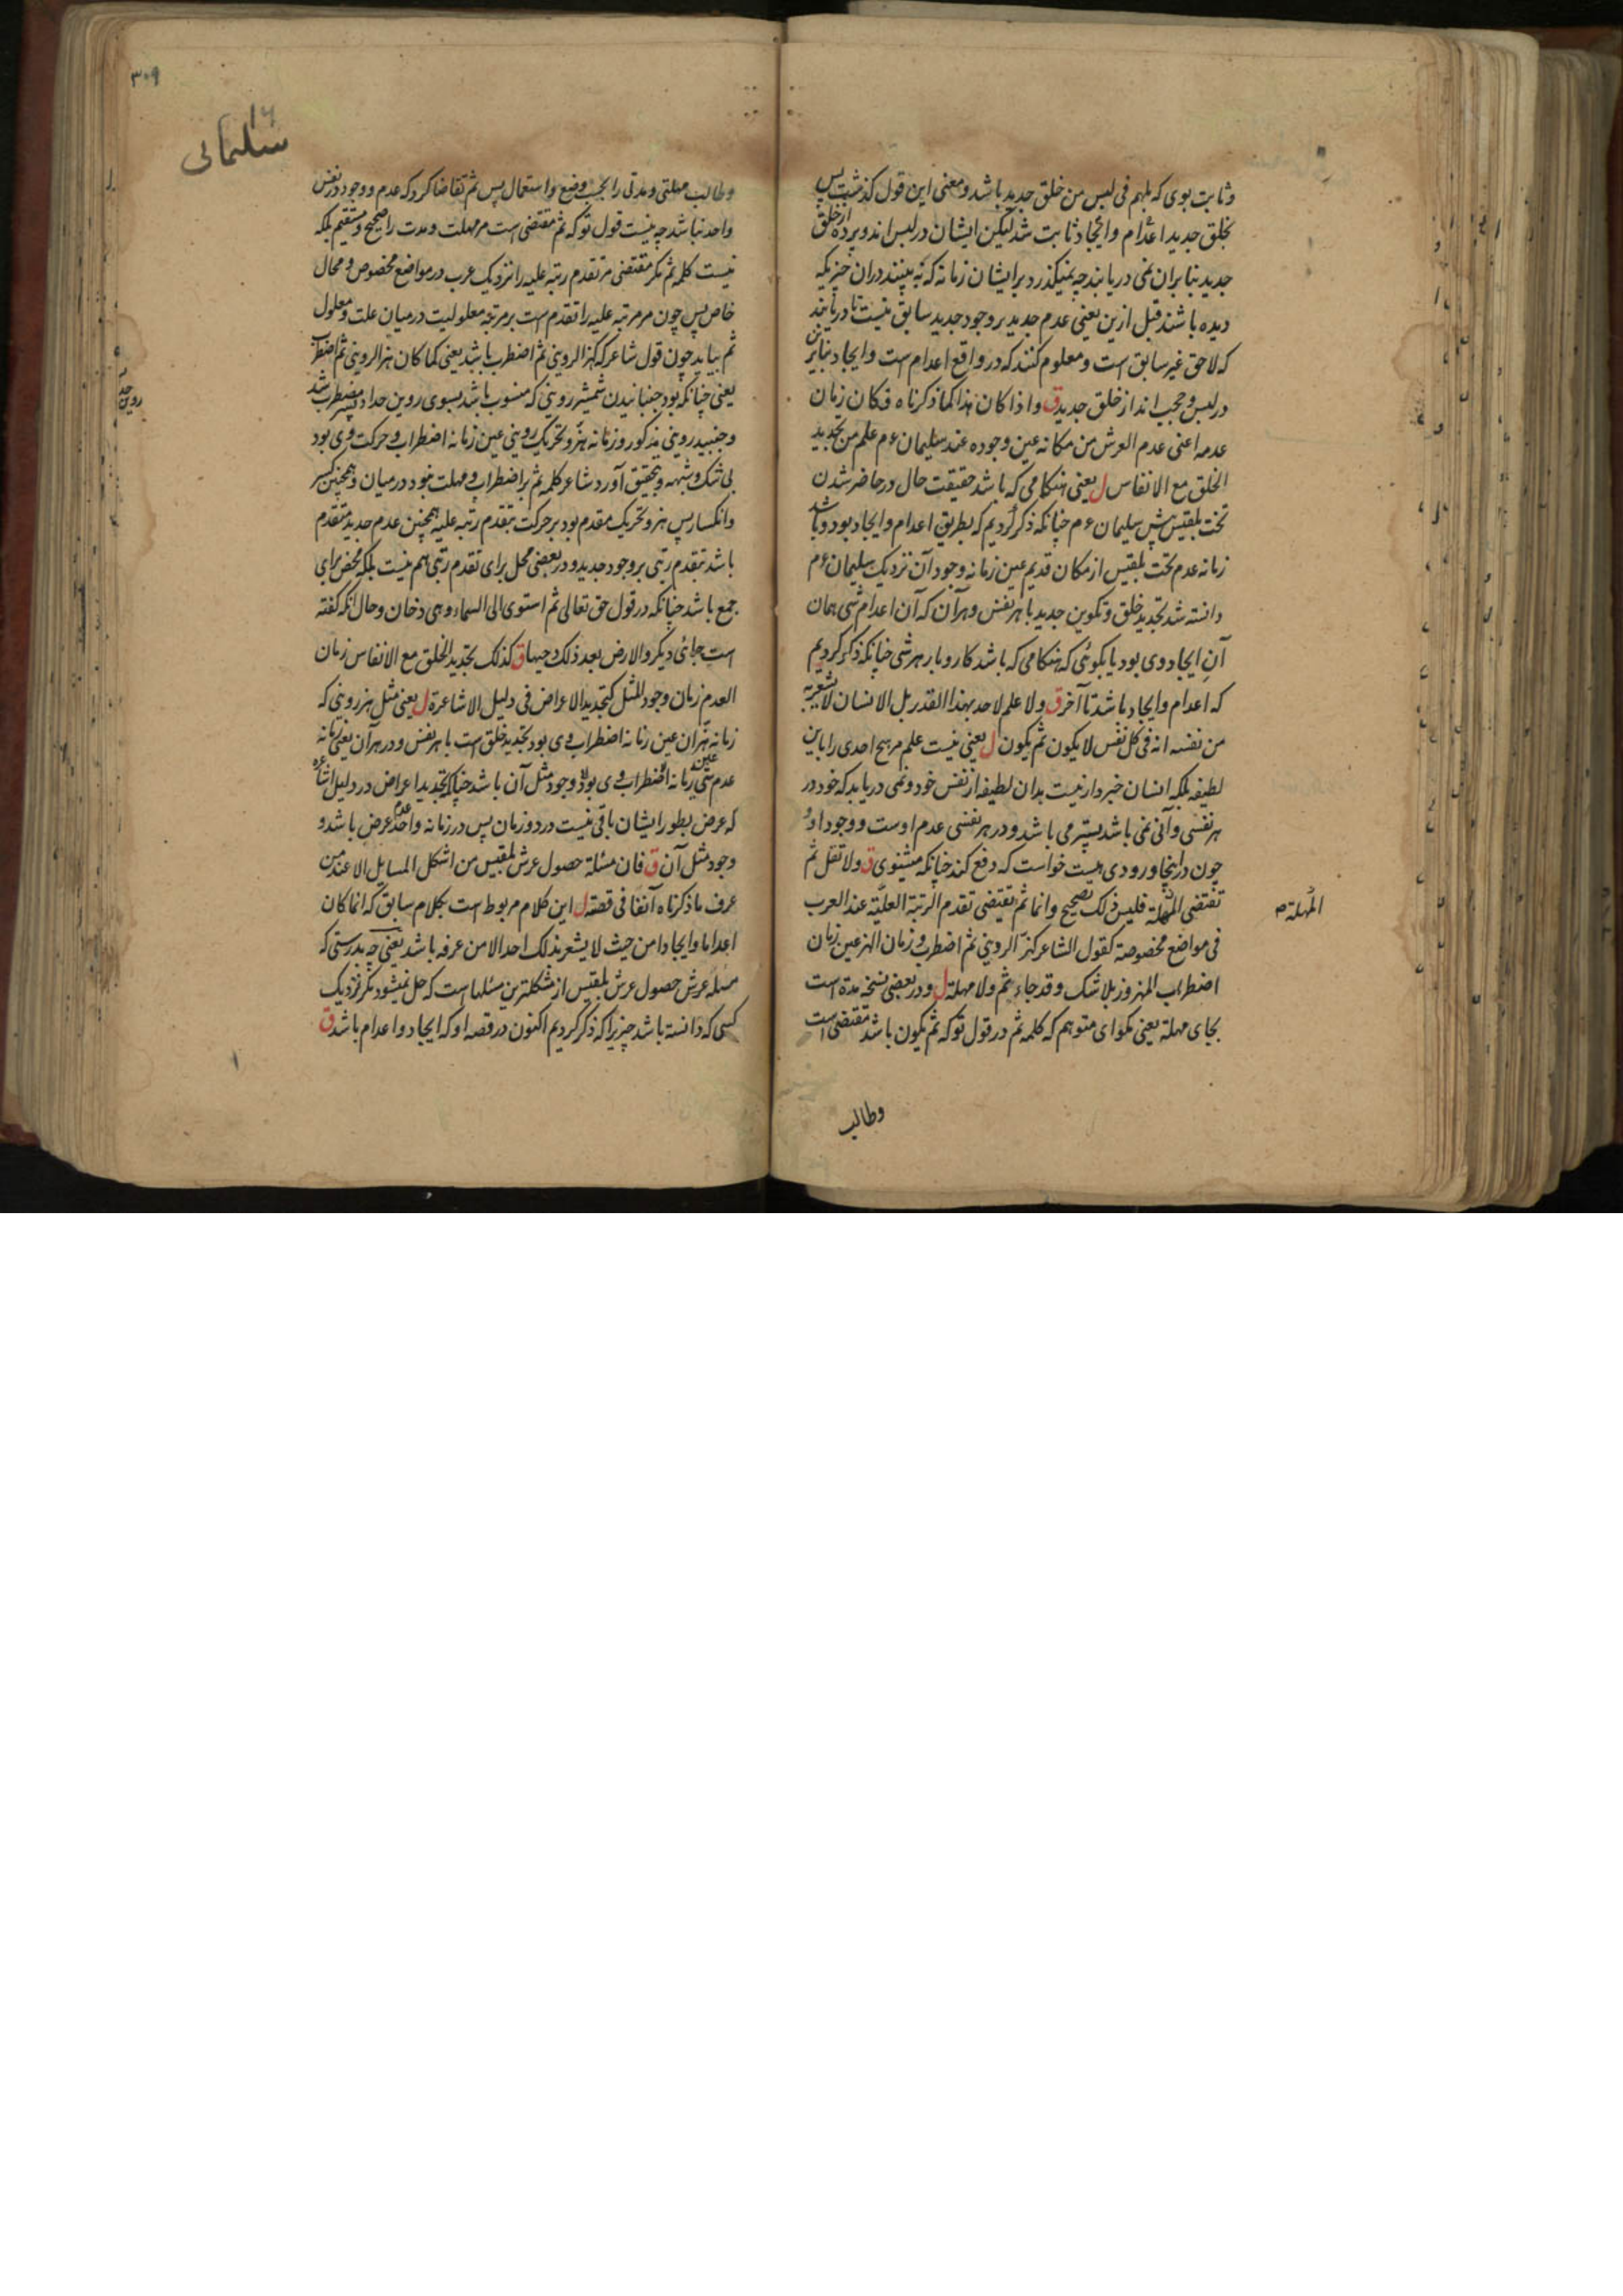 وثابت بوی که بلهم فی لبس من خلق جدید باشد ومعنی این قول گذشت پس
بخلق جدید اعدام وایجاد ثابت شد لیکن ایشان در لبس اند وپرده از خلق
جدید بنابران نمی دریابند چه نمیگذرد بر ایشان زمانه که نه بینند دران چیزیکه
دیده باشند قبل ازین یعنی عدم جدید بر وجود جدید سابق نیست تا دریابند
که لاحق غیر سابق است ومعلوم کنند که در واقع اعدام است وایجاد بنابرین
در لبس وحجب اند از خلق جدید ق واذا کان هذا کما ذکرناه فکان زمان
عدمه اعنی عدم العرش من مکانه عین وجوده عند سلیمان ءم علم من تجدید
الخلق مع الانفاس ل یعنی هنگامی که باشد حقیقت حال در حاضر شدن
تخت بلقیس پیش سلیمان ءم چنانکه ذکر کردیم که بطریق اعدام وایجاد بود وباشد
زمانه عدم تخت بلقیس از مکان قدیم عین زمانه وجود آن نزدیک سلیمان ءم
دانسته شد تجدید خلق وتکوین جدید با هر نفس وهر آن که آن اعدام شی همان
آن ایجاد وی بود یا بگوئی که هنگامی که باشد کاروبار هر شی چنانکه ذکر کردیم
که اعدام وایجاد باشد تا آخر ق ولا علم لاحد بهذا القدر بل الانسان لا یشعر به
من نفسه انه فی کل نفس لا یکون ثم یکون ل یعنی نیست علم مر هیچ احدی را باین
لطیفه بلکه انسان خبردار نیست بدان لطیفه از نفس خود ونمی دریابد که خود در
هر نفسی وآنی نمی باشد پستر می باشد ودر هر نفسی عدم اوست ووجود او و
چون در اینجا ورودی هست خواست که دفع کند چنانکه میشنوی ق ولا تقل ثم
تقتضی المهلة فلیس ذلک بصحیح وانما ثم تقتضی تقدم الرتبة العلیة عند العرب
فی مواضع مخصوصة کقول الشاعر کهز الردینی ثم اضطرب وزمان الهز عین زمان
اضطراب المهزوز بلا شک وقد جاء بثم ولا مهلة ل ودر بعضی نسخه مدة است
بجای مهلة یعنی مگو ای متوهم که کلمه ثم در قول تو که ثم یکون باشد مقتضی است
المهلة
وطالب
۳۰۹
۱۶
سلیمانی
وطالب مهلتی ومدتی را بحسب وضع واستعمال پس ثم تقاضا کرد که عدم ووجود در نفس
واحد نباشد چه نیست قول تو که ثم مقتضی است مر مهلت ومدت را صحیح ومستقیم بلکه
نیست کلمه ثم مگر مقتضی مر تقدم رتبه علیه را نزدیک عرب در مواضع مخصوص ومحال
خاص پس چون مر مرتبه علیه را تقدم است بر مرتبه معلولیت درمیان علت ومعلول
ثم بیاید چون قول شاعر که کهز الردینی ثم اضطرب باشد یعنی کما کان هز الردینی ثم اضطرب
یعنی چنانکه بود جنبانیدن شمشیر روینی که منسوب باشد بسوی روین حداد پستر مضطرب شد
وجنبید روینی مذکور وزمانه هز وتحریک روینی عین زمانه اضطراب وحرکت وی بود
بی شک وشبهه وبتحقیق آورد شاعر کلمه ثم بر اضطراب ومهلت نبود درمیان وهمچنین کسر
وانکسار پس هز وتحریک مقدم بود بر حرکت بتقدم رتبه علیه همچنین عدم جدید متقدم
باشد بتقدم رتبی بر وجود جدید ودر بعضی محل برای تقدم رتبی هم نیست بلکه محض برای
جمع باشد چنانکه در قول حق تعالی ثم استوی الی السماء وهی دخان وحال آنکه گفته
است جائی دیگر والارض بعد ذلک دحیها ق کذلک تجدید الخلق مع الانفاس زمان
العدم زمان وجود المثل کتجدید الاعراض فی دلیل الاشاعرة ل یعنی مثل هز روینی که
زمانه هز آن عین زمانه اضطراب وی بود تجدید خلق است با هر نفس ودر هر آن یعنی زمانه
عدم شی عین زمانه اضطراب وی بود وجود مثل آن باشد چنانکه تجدید اعراض در دلیل اشاعره
که عرض بطور ایشان باقی نیست در دو زمان پس در زمانه واحد عدم عرض باشد و
وجود مثل آن ق فان مسئلة حصول عرش بلقیس من اشکل المسایل الا عند من
عرف ما ذکرناه آنفا فی قصته ل این کلام مربوط است بکلام سابق که انما کان
اعداما وایجادا من حیث لا یشعر بذلک احد الا من عرفه باشد یعنی چه بدرستی که
مسئله عرش حصول عرش بلقیس از مشکلترین مسئلها است که حل نمیشود مگر نزدیک
کسی که دانسته باشد چیزیرا که ذکر کردیم اکنون در قصه او که ایجاد واعدام باشد ق